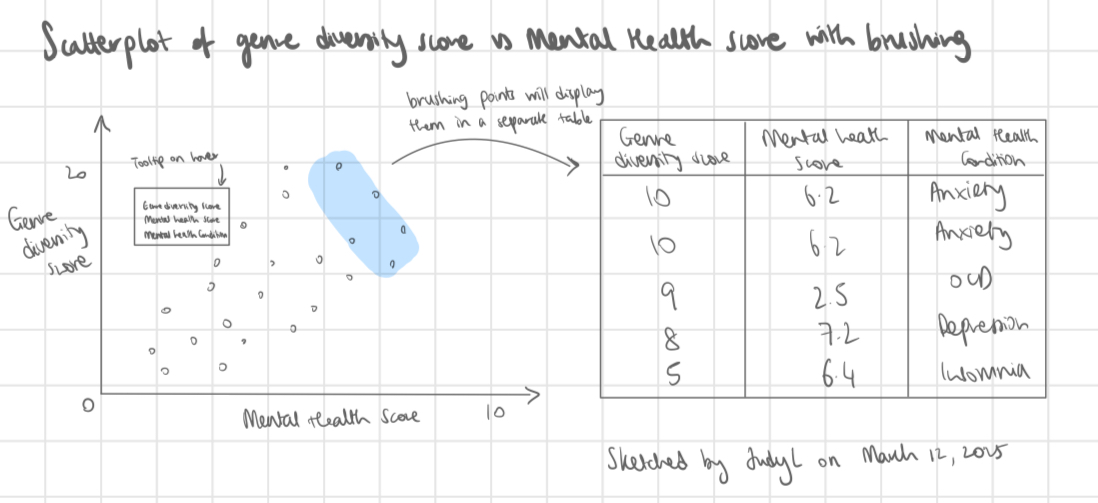 Scatterplot of genre diversity score vs Mental Health score with brushing
brushing points will display
them in a separate table
Tooltip on hover
20
Genre diversity score
Mental health score
Mental health Condition
Genre
diversity
score
0
Mental Health Score
10
Genre
diversity score
Mental health
score
Mental Health
Condition
10 6.2 Anxiety
10 6.2 Anxiety
9 2.5 OCD
8 7.2 Depression
5 6.4 Insomnia
Sketched by JudyL on March 12, 2025